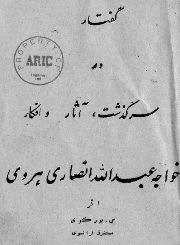 گفتار
در
سرگذشت، آثار و افکار
خواجه عبدالله انصاری هروی
از
PROPERTY OF
ARIC